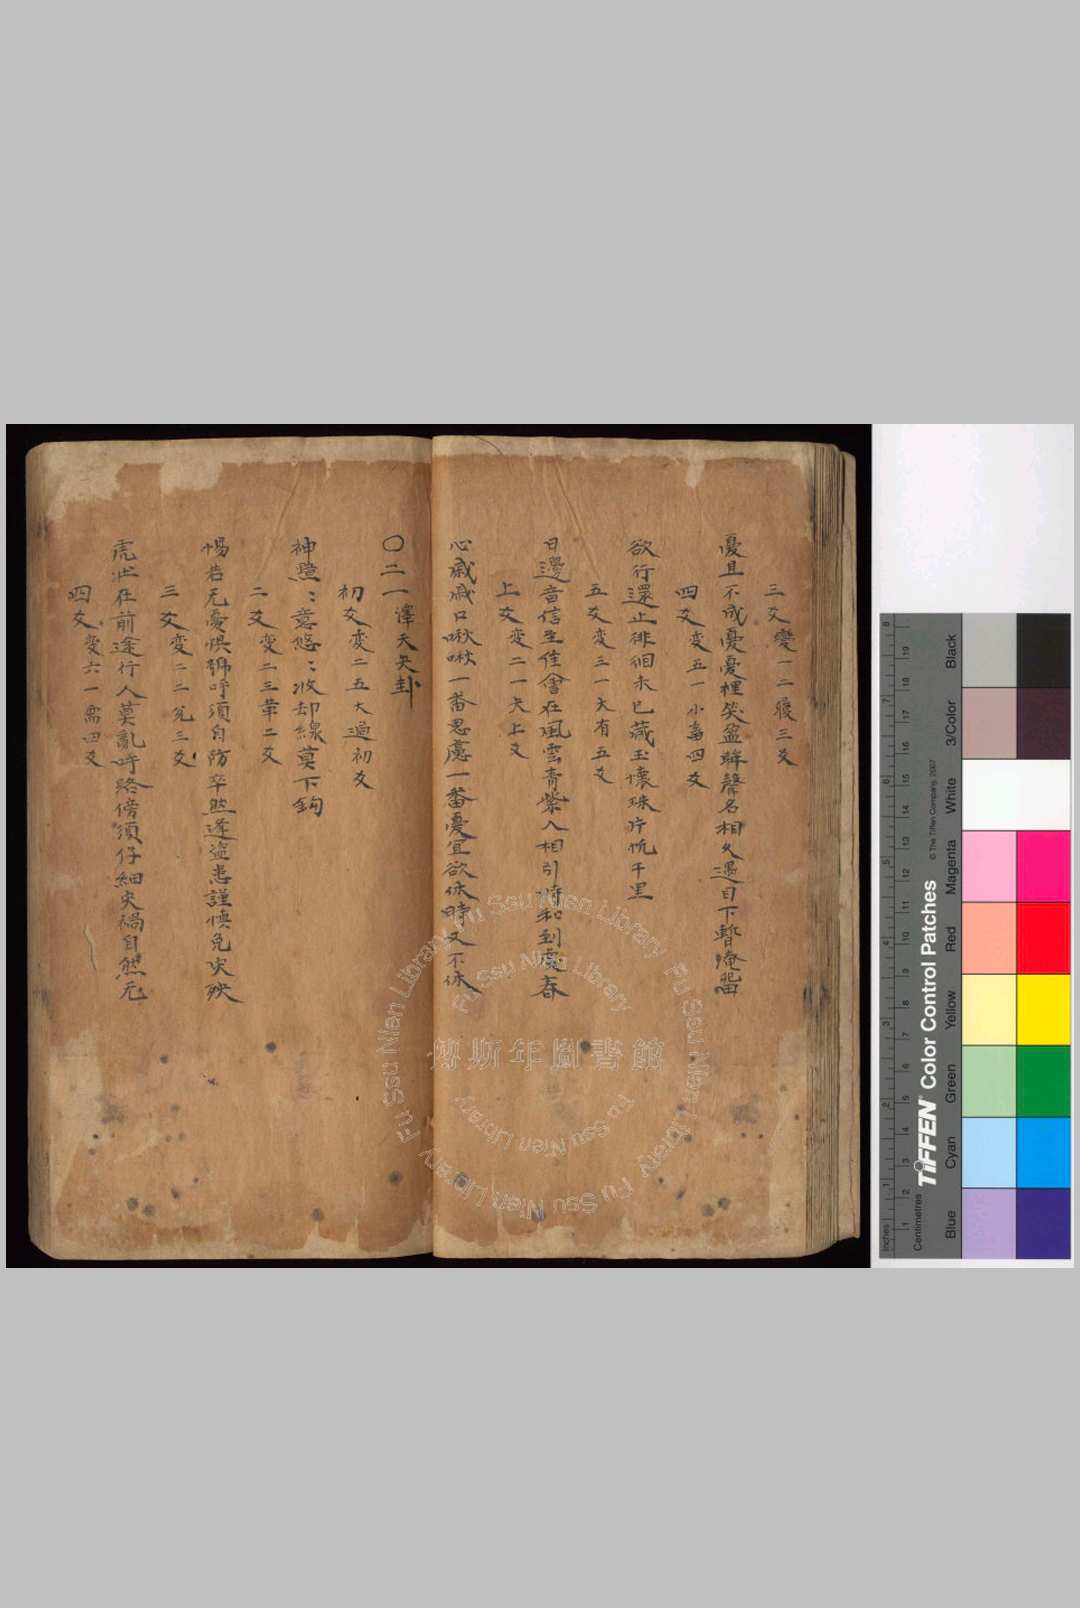 三爻變一二履三爻
憂且不成憂憂裡笑盈眸聲名相久遇目下暫淹留
四爻变五一小畜四爻
欲行還止徘徊未已藏玉懷珠片帆千里
五爻变三一大有五爻
日邊音信至佳會在風雲青紫人相引時和到處春
上爻变二一夬上爻
心戚戚口啾啾一番思慮一番憂宜欲休時又不休
〇二一澤天夬卦
初爻变二五大過初爻
神曀〻意悠〻收却線莫下鈎
二爻变二三革二爻
惕若无憂惧號呼須自防卒然逢盜患謹慎免灾殃
三爻变二二兌三爻
虎㐀在前途行人莫亂呼路傍須仔細灾禍自然无
四爻变六一需四爻
傅斯年圖書館
Fu Ssu Nien Library Fu Ssu Nien Library Fu Ssu Nien Library Fu Ssu Nien Library
Fu Ssu Nien Library Fu Ssu Nien Library
Inches
Centimetres
TIFFEN® Color Control Patches
© The Tiffen Company, 2007
Blue
Cyan
Green
Yellow
Red
Magenta
White
3/Color
Black